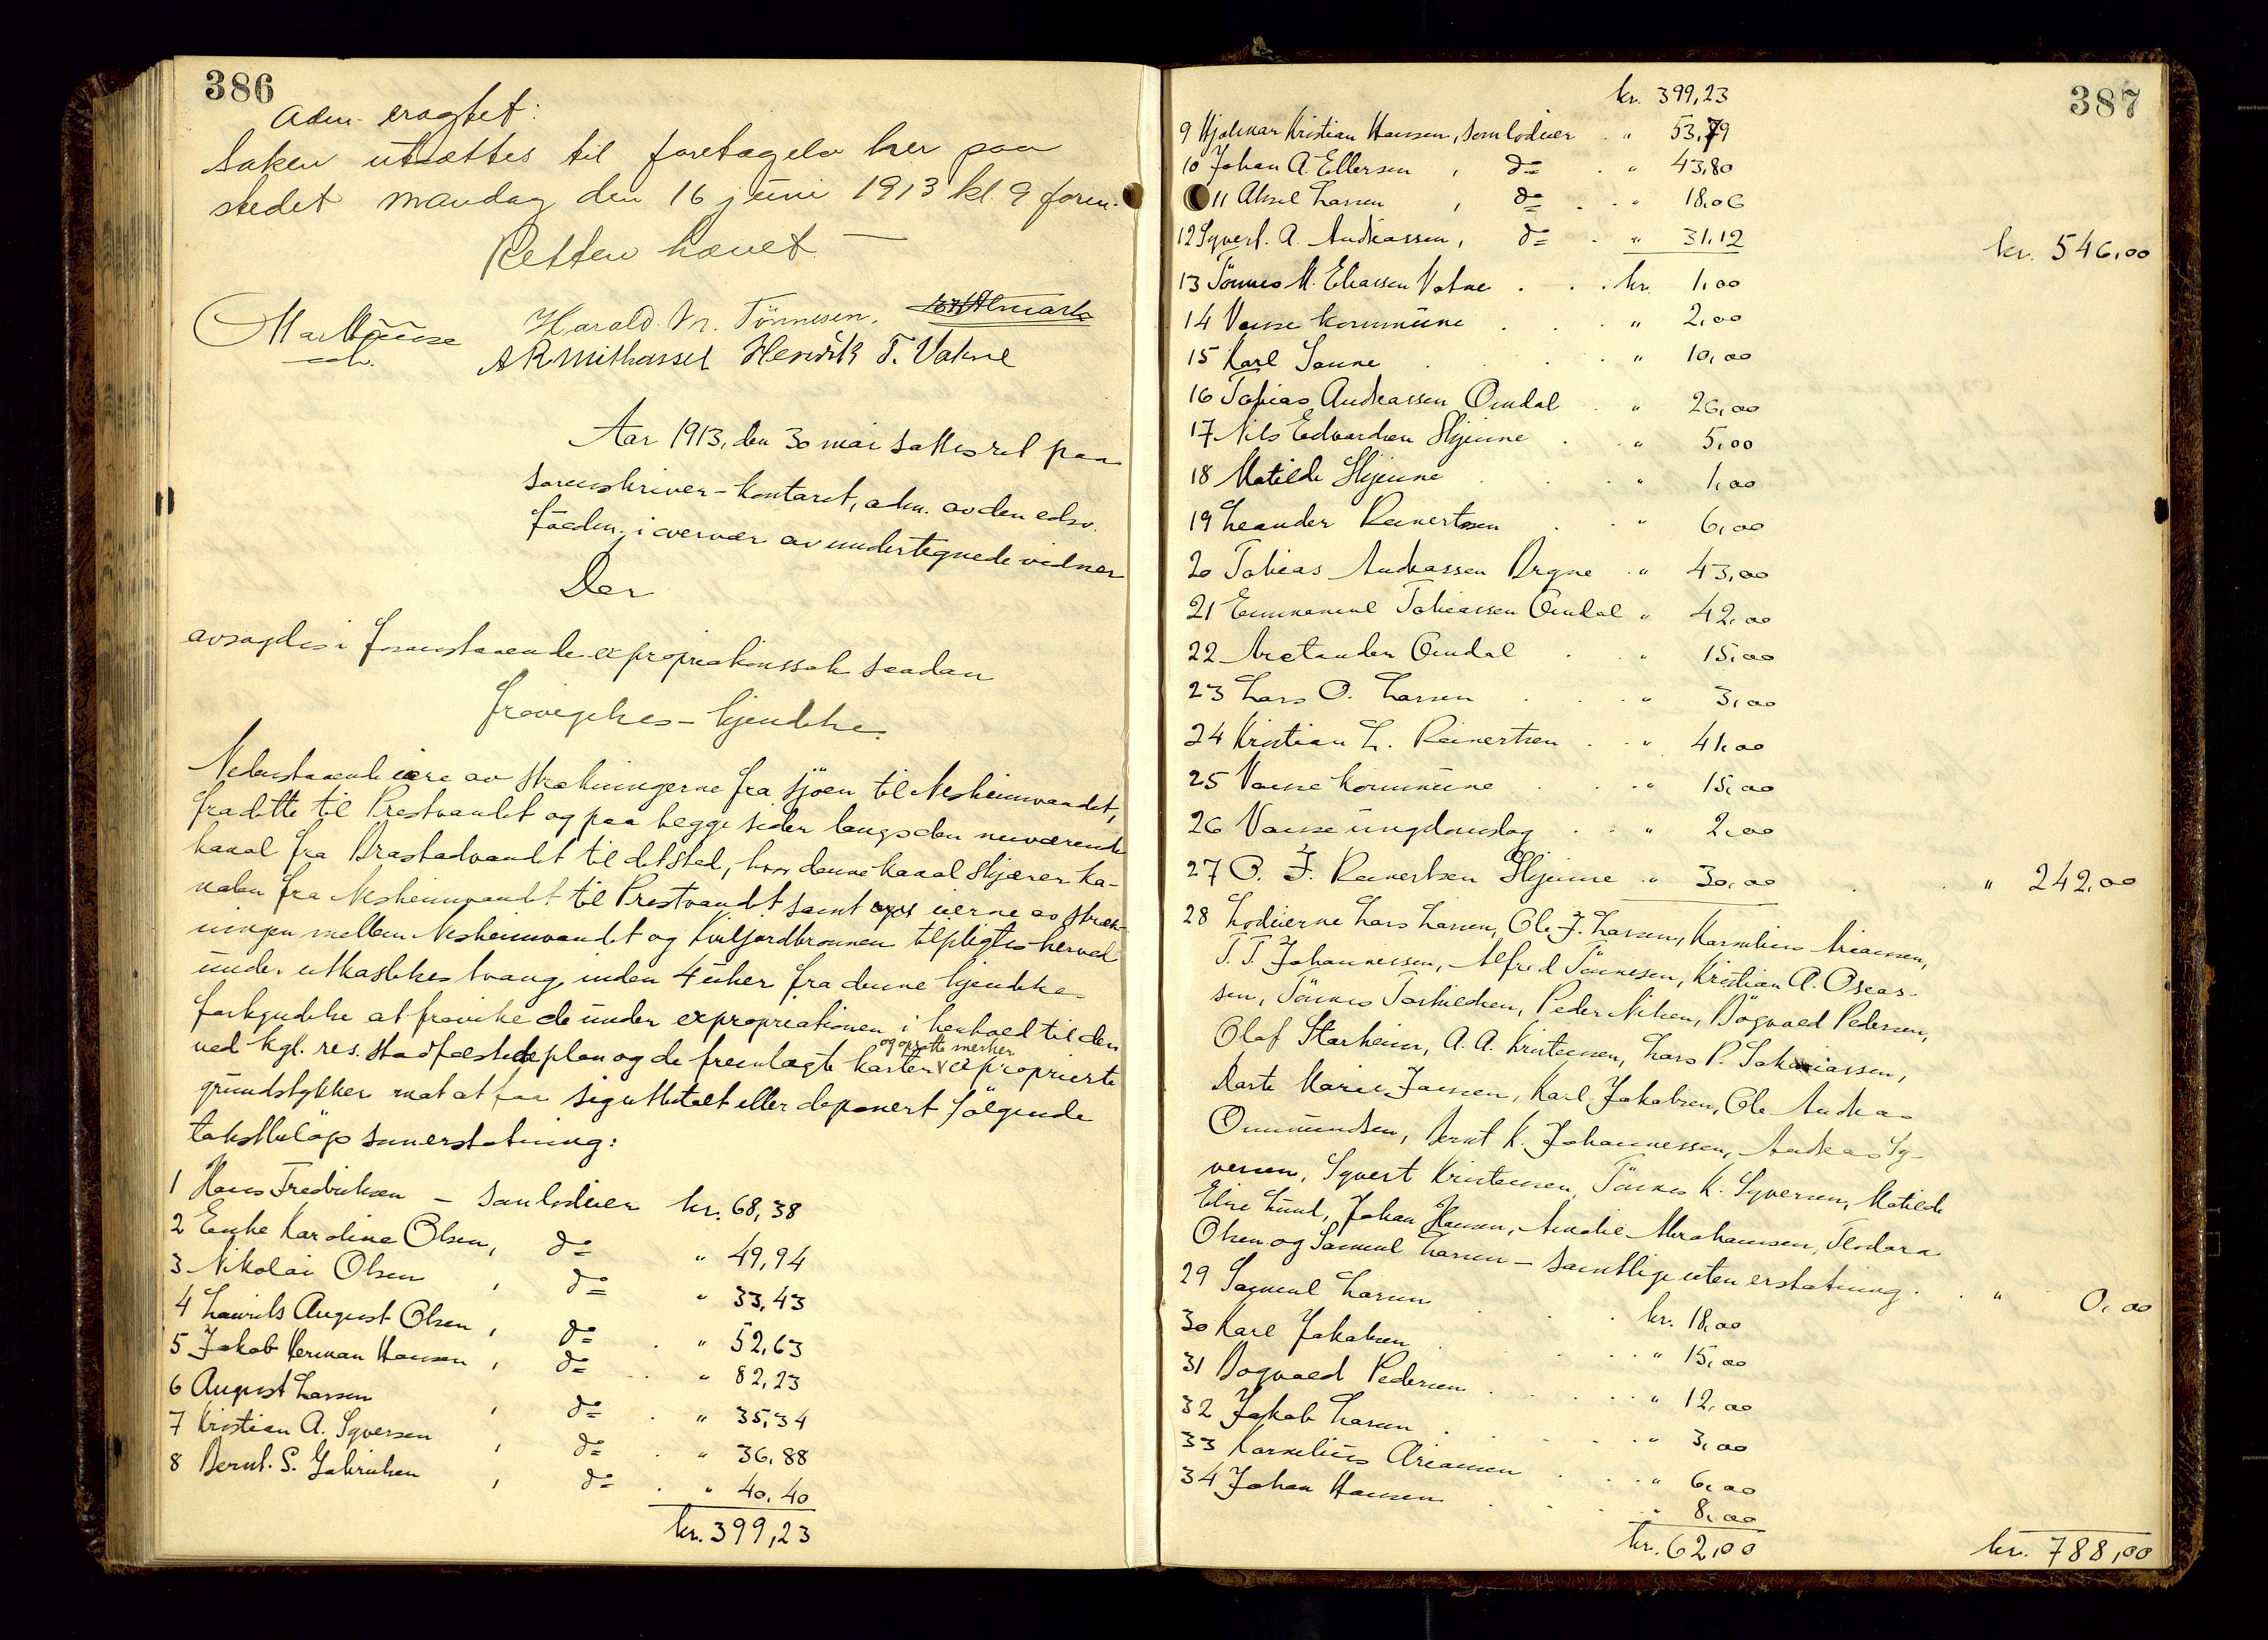 386
Adm. eragtet:
Saken utsættes til foretagelse her paa
stedet mandag den 16 juni 1913 kl. 9 form.
Retten hævet —
Harald M. Tönnesen,
Henrik T. Vatne
Aar 1913, den 30 mai sattes ret paa
sorenskriver-kontoret, adm. av den edsv.
fuldm. i overvær av undertegnede vidner
Der
avsagdes i foranstaaende expropriationssak saadan
fravigelses-kjendelse.
Nedenstaaende eiere av strækningerne fra sjöen til Nesheimvandet,
fra dette til Prestvandet og paa begge sider langs den nuværende
kanal fra Brastadvandet til det sted, hvor denne kanal skjærer ka-
nalen fra Nesheimvandet til Prestvandet samt eierne av stræk-
ningen mellem Nesheimvandet og Kviljordbrønnen tilpligtes herved
under utkastelses tvang inden 4 uker fra denne kjendelses
forkyndelse at fravike de under expropriationen i henhold til den
ved kgl. res. stadfæstede plan og de fremlagte karter og opsatte merker exproprierte
grundstykker mot at faa sig utbetalt eller deponert følgende
takstbeløp som erstatning:
1 Hans Fredriksen – som lodeier kr. 68,38
2 Enke Karoline Olsen, do " 49,94
3 Nikolai Olsen , do " 33,43
4 Laurits August Olsen , do . " 52,63
5 Jakob Herman Hansen , do . " 82,23
6 August Larsen , do . " 35,34
7 Kristian A. Syversen , do . " 36,88
8 Bernt S. Gabrielsen , do . " 40,40
kr. 399,23
387
kr. 399,23
9 Hjalmar Kristian Hansen, som lodeier . " 53,79
10 Johan A. Ellersen , do . " 43,80
11 Aksel Larsen , do . . " 18,06
12 Syvert A. Andreassen, do . " 31,12 kr. 546,00
13 Tönnes M. Eliassen Vatne . . . kr. 1,00
14 Vanse kommune . . . " 2,00
15 Karl Sanne . . . " 10,00
16 Tobias Andreassen Omdal . " 26,00
17 Nils Edvardsen Skjeune . . " 5,00
18 Matilde Skjeune . . . " 1,00
19 Leander Reinertsen . . " 6,00
20 Tobias Andreassen Brgne . " 43,00
21 Emmanuel Tobiassen Omdal " 42,00
22 Aretander Omdal . . " 15,00
23 Lars O. Larsen . . . " 3,00
24 Kristian L. Reinertsen . . " 41,00
25 Vanse kommune . . . " 15,00
26 Vanse ungdomslag . . " 2,00
27 O. F. Reinertsen Skjeune . " 30,00 . . " 242,00
28 Lodeierne Lars Larsen, Ole J. Larsen, Kornelius Ariansen,
T. T. Johannessen, Alfred Tönnesen, Kristian A. Oscar-
sen, Tönnes Torkildsen, Peder Nilsen, Dogvald Pedersen,
Olaf Starheim, A. A. Kristensen, Lars P. Sakariassen,
Marie Jansen, Karl Jakobsen, Ole Andreas
Ommundsen, Bernt K. Johannessen, Andreas Sy-
versen, Syvert Kristensen, Tönnes K. Syversen, Matilde
Elise Lund, Johan Hansen, Amalie Abrahamsen, Teodora
Olsen og Samuel Larsen – samtlige uten erstatning . . " 0,00
29 Samuel Larsen . . kr. 18,00
30 Karl Jakobsen . . . " 15,00
31 Dogvald Pedersen . . . . " 12,00
32 Jakob Larsen . . . . " 3,00
33 Kornelius Ariansen . . . " 6,00
34 Johan Hansen . . . " 8,00
kr. 62,00 kr. 788,00